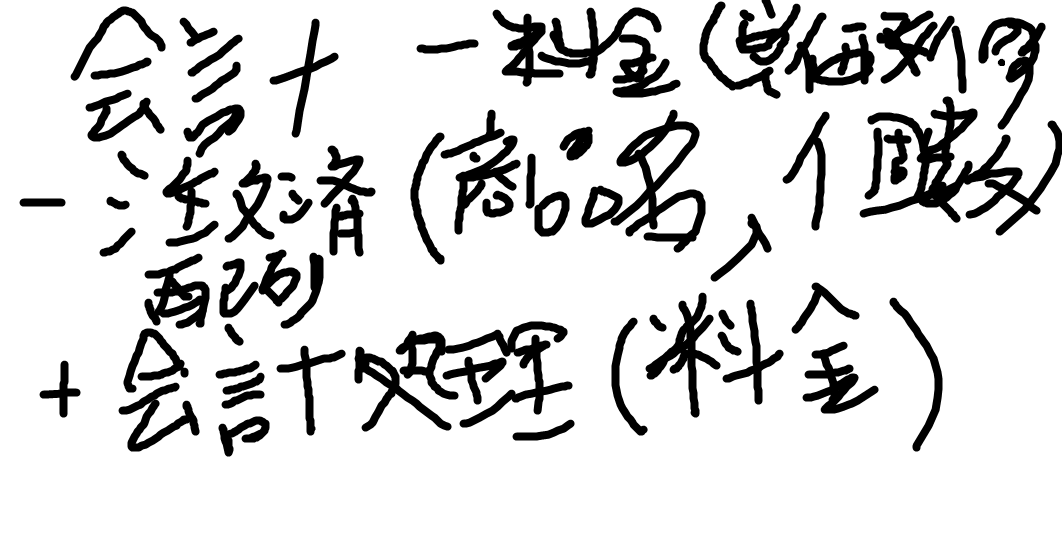 会計 -料金(単価
-注文済 (商品名, 個数)
配列
+会計処理(料金)